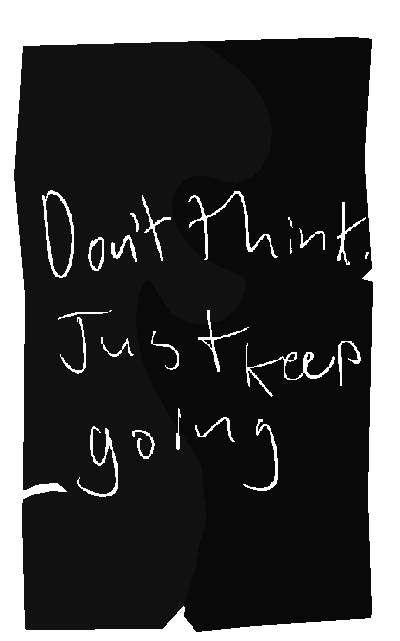 Don't think.
Just keep
going